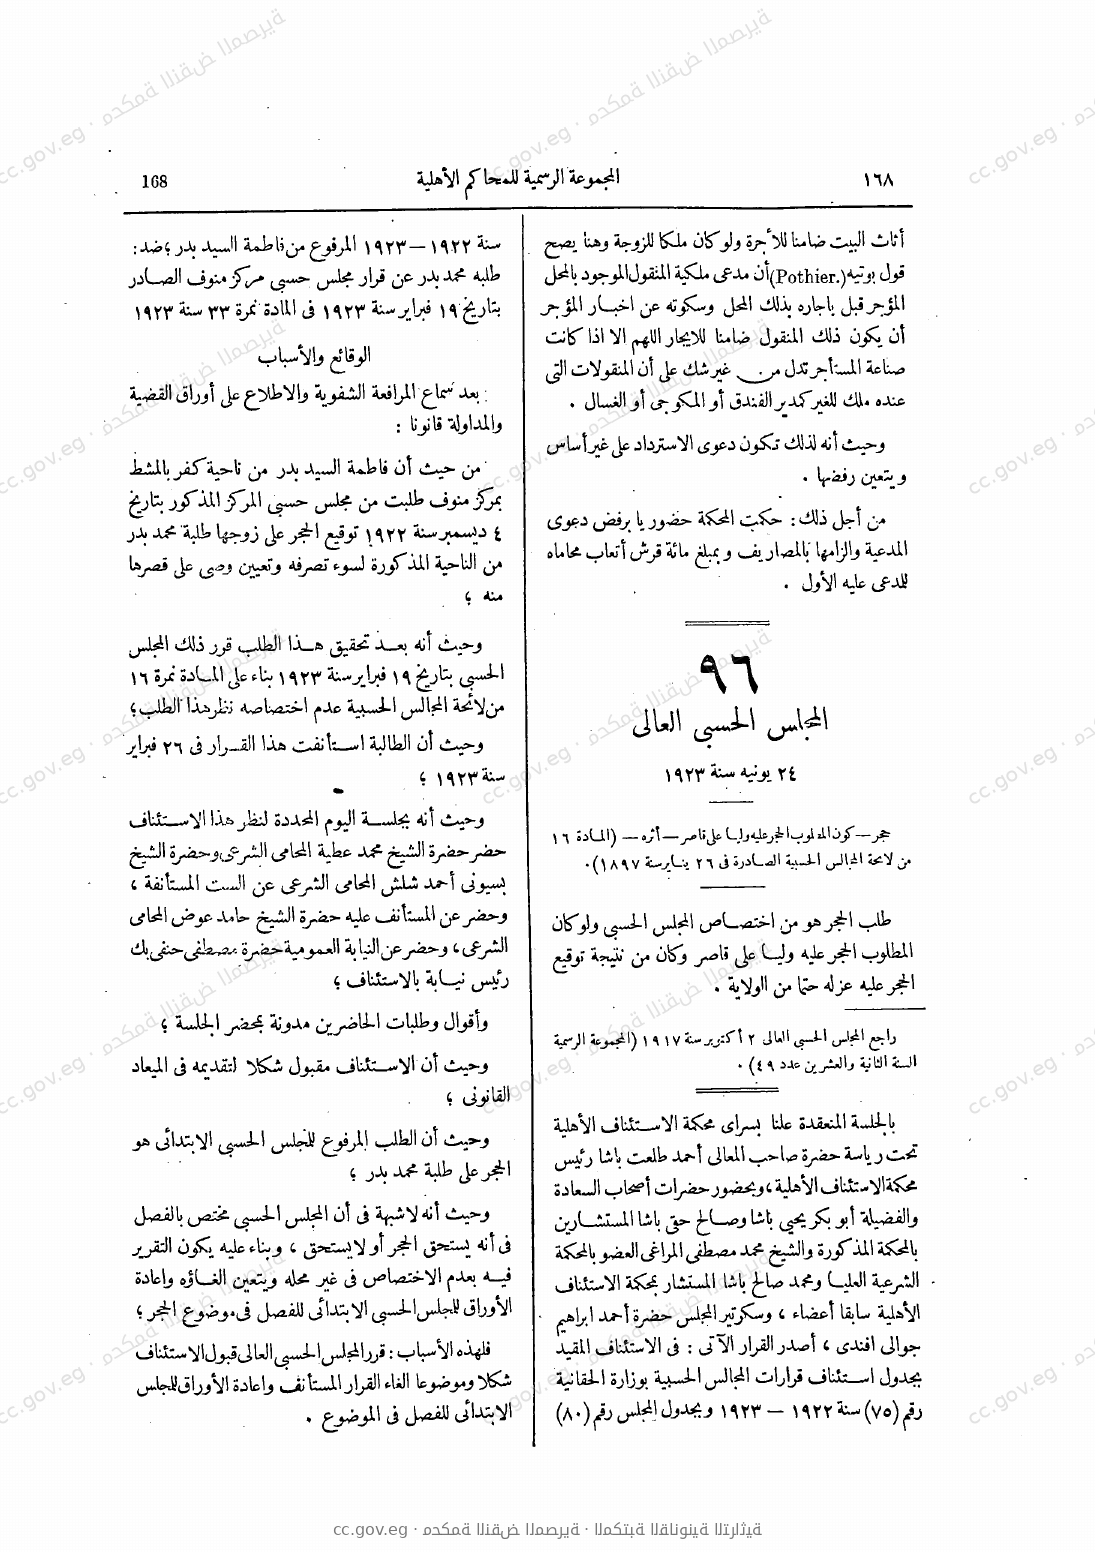 ١٦٨
المجموعة الرسمية للمحاكم الأهلية
168
أثاث البيت ضامنا للأجرة ولو كان ملكا للزوجة وهنا يصح
قول بوتيه (Pothier.) أن مدعى ملكية المنقول الموجود بالمحل
المؤجر قبل باجاره بذلك المحل وسكوته عن اخبار المؤجر
أن يكون ذلك المنقول ضامنا للايجار اللهم الا اذا كانت
صناعة المستأجر تدل من غير شك على أن المنقولات التى
عنده ملك للغير كمدير الفندق أو المكوجى أو الغسال .
وحيث أنه لذلك تكون دعوى الاسترداد على غير أساس
ويتعين رفضها .
من أجل ذلك : حكمت المحكمة حضوريا برفض دعوى
المدعية والزامها بالمصاريف وبمبلغ مائة قرش أتعاب محاماه
للدعى عليه الأول .
٩٦
المجلس الحسبي العالى
٢٤ يونيه سنة ١٩٢٣
حجر — كون المطلوب الحجر عليه وليا على قاصر — أثره — (المادة ١٦
من لائحة المجالس الحسبية الصادرة فى ٢٦ ينايرسنة ١٨٩٧) .
طلب الحجر هو من اختصاص المجلس الحسبي ولو كان
المطلوب الحجر عليه وليا على قاصر وكان من نتيجة توقيع
الحجر عليه عزله حتما من الولاية .
راجع المجلس الحسبي العالى ٢ أكتوبر سنة ١٩١٧ (المجموعة الرسمية
السنة الثانية والعشرين عدد ٤٩) .
بالجلسة المنعقدة علنا بسراى محكمة الاستئناف الأهلية
تحت رياسة حضرة صاحب المعالى أحمد طلعت باشا رئيس
محكمة الاستئناف الأهلية ، وبحضور حضرات أصحاب السعادة
والفضيلة أبو بكر يحيى باشا وصالح حقى باشا المستشارين
بالمحكمة المذكورة والشيخ محمد مصطفى المراغى العضو بالمحكمة
الشرعية العليا ومحمد صالح باشا المستشار بمحكمة الاستئناف
الأهلية سابقا أعضاء ، وسكرتير المجلس حضرة أحمد ابراهيم
جوالى افندى ، أصدر القرار الآتى : فى الاستئناف المقيد
بجدول استئناف قرارات المجالس الحسبية بوزارة الحقانية
رقم (٧٥) سنة ١٩٢٢ — ١٩٢٣ وبجدول المجلس رقم (٨٠)
سنة ١٩٢٢ — ١٩٢٣ المرفوع من فاطمة السيد بدر ؛ ضد :
طلبه محمد بدر عن قرار مجلس حسبي مركز منوف الصادر
بتاريخ ١٩ فبراير سنة ١٩٢٣ فى المادة نمرة ٣٣ سنة ١٩٢٣
الوقائع والأسباب
بعد سماع المرافعة الشفوية والاطلاع على أوراق القضية
والمداولة قانونا :
من حيث أن فاطمة السيد بدر من ناحية كفر بالمشط
بمركز منوف طلبت من مجلس حسبي المركز المذكور بتاريخ
٤ ديسمبر سنة ١٩٢٢ توقيع الحجر على زوجها طلبة محمد بدر
من الناحية المذكورة لسوء تصرفه وتعيين وصى على قصرها
منه ؛
وحيث أنه بعد تحقيق هذا الطلب قرر ذلك المجلس
الحسبي بتاريخ ١٩ فبراير سنة ١٩٢٣ بناء على المادة نمرة ١٦
من لائحة المجالس الحسبية عدم اختصاصه نظر هذا الطلب ؛
وحيث أن الطالبة استأنفت هذا القرار فى ٢٦ فبراير
سنة ١٩٢٣ ؛
وحيث أنه بجلسة اليوم المحددة لنظر هذا الاستئناف
حضر حضرة الشيخ محمد عطية المحامى الشرعى وحضرة الشيخ
بسيونى أحمد شلش المحامى الشرعى عن الست المستأنفة ،
وحضر عن المستأنف عليه حضرة الشيخ حامد عوض المحامى
الشرعى ، وحضر عن النيابة العمومية حضرة مصطفى حنفى بك
رئيس نيابة بالاستئناف ؛
وأقوال وطلبات الحاضرين مدونة بمحضر الجلسة ؛
وحيث أن الاستئناف مقبول شكلا لتقديمه فى الميعاد
القانونى ؛
وحيث أن الطلب المرفوع للمجلس الحسبي الابتدائى هو
الحجر على طلبة محمد بدر ؛
وحيث أنه لاشبهة فى أن المجلس الحسبي مختص بالفصل
فى أنه يستحق الحجر أو لايستحق ، وبناء عليه يكون التقرير
فيه بعدم الاختصاص فى غير محله ويتعين الغاؤه واعادة
الأوراق للمجلس الحسبي الابتدائى للفصل فى موضوع الحجر ؛
فلهذه الأسباب : قرر المجلس الحسبي العالى قبول الاستئناف
شكلا وموضوعا الغاء القرار المستأنف واعادة الأوراق للمجلس
الابتدائى للفصل فى الموضوع .
cc.gov.eg · محكمة النقض المصرية · المكتبة القانونية التراثية